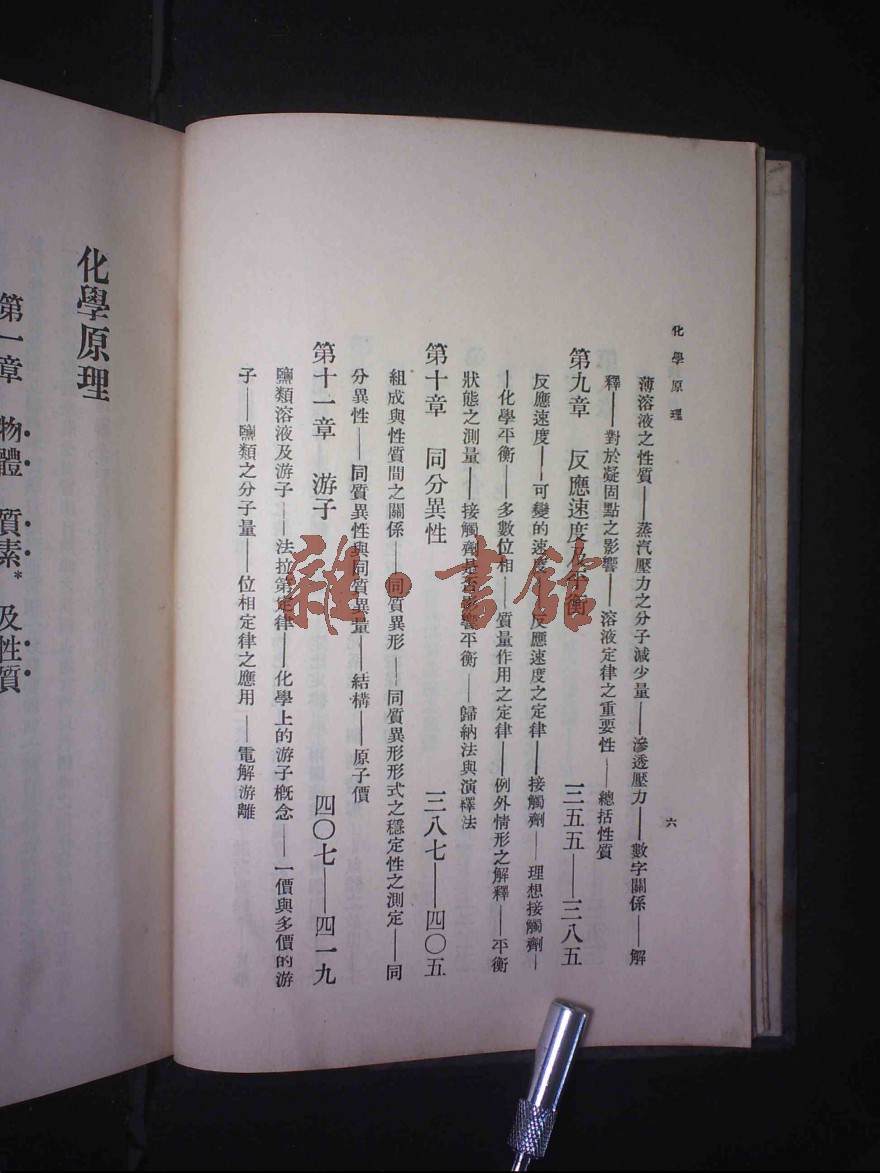 化學原理
六
薄溶液之性質——蒸汽壓力之分子減少量——滲透壓力——數字關係——解
釋——對於凝固點之影響——溶液定律之重要性——總括性質
第九章 反應速度及平衡 三五五——三八五
反應速度——可變的速度——反應速度之定律——接觸劑——理想接觸劑—
—化學平衡——多數位相——質量作用之定律——例外情形之解釋——平衡
狀態之測量——接觸劑是否影響平衡——歸納法與演檡法
第十章 同分異性 三八七——四〇五
組成與性質間之關係——同質異形——同質異形形式之穩定性之測定——同
分異性——同質異性與同質異量——結構——原子價
第十一章 游子 四〇七——四一九
鹽類溶液及游子——法拉第定律——化學上的游子概念——一價與多價的游
子——鹽類之分子量——位相定律之應用——電解游離
化學原理
第一章 物體 質素* 及性質
雜·書館